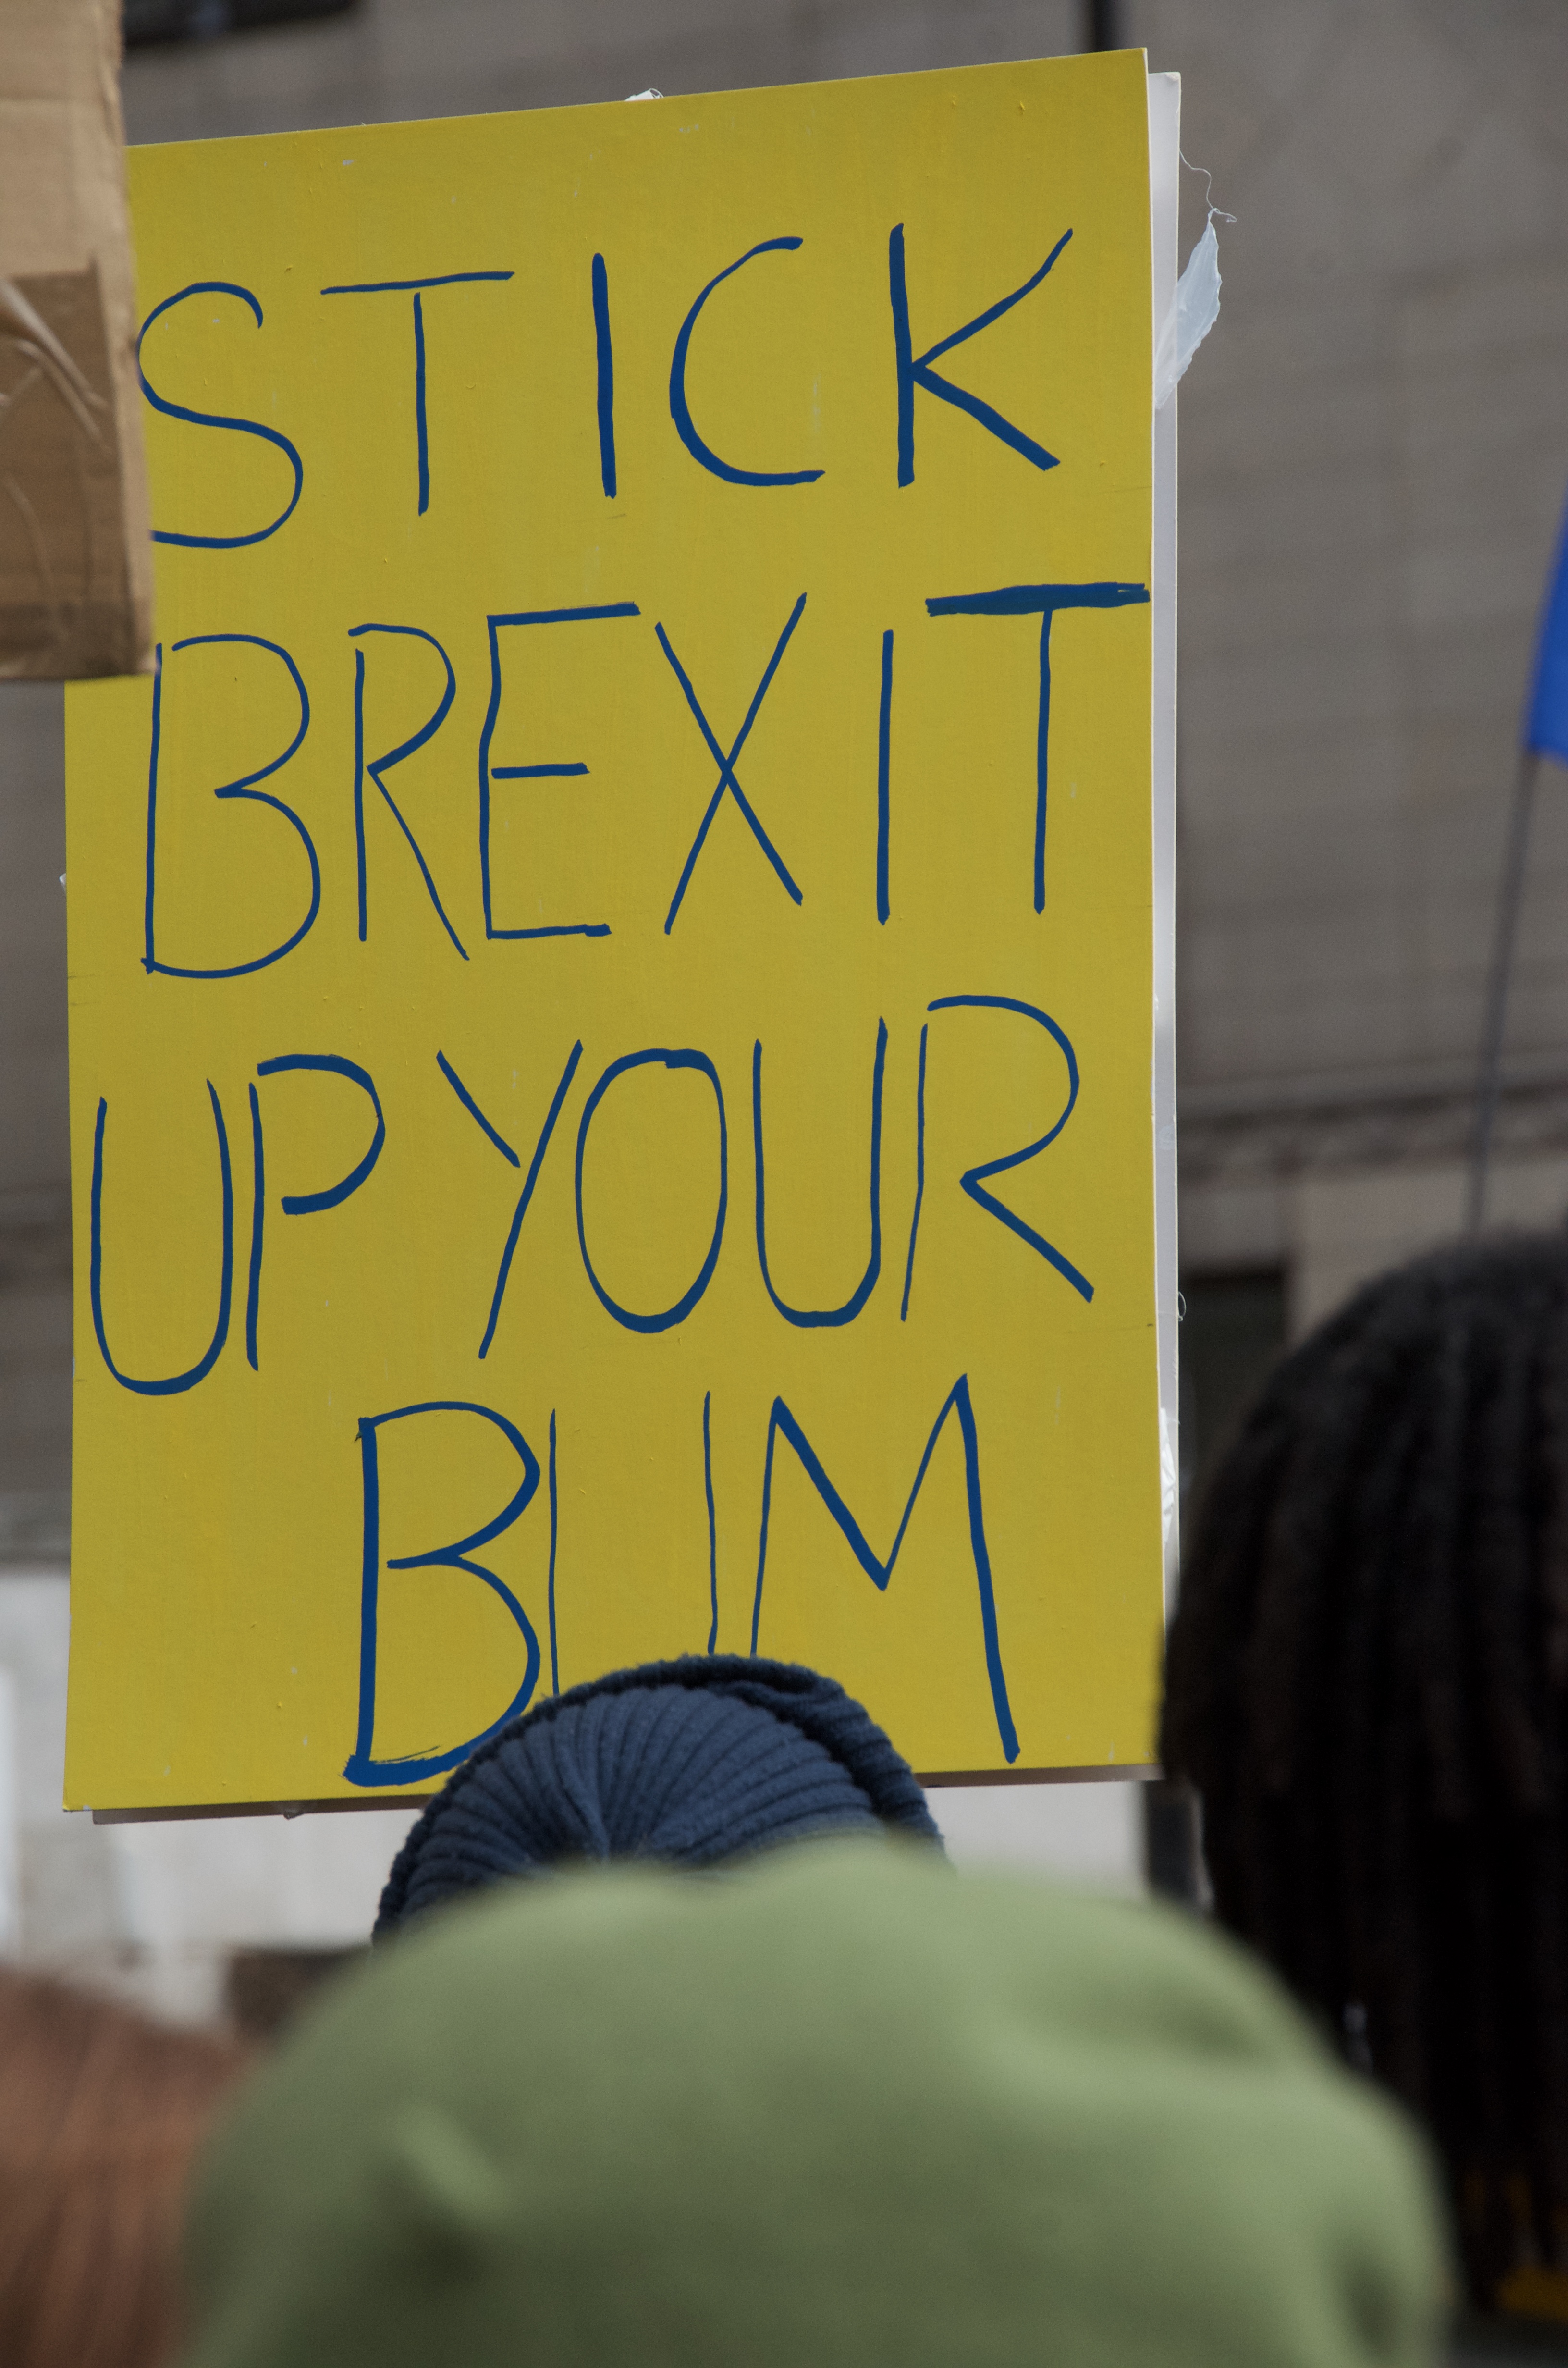 STICK
BREXIT
UP YOUR
BUM